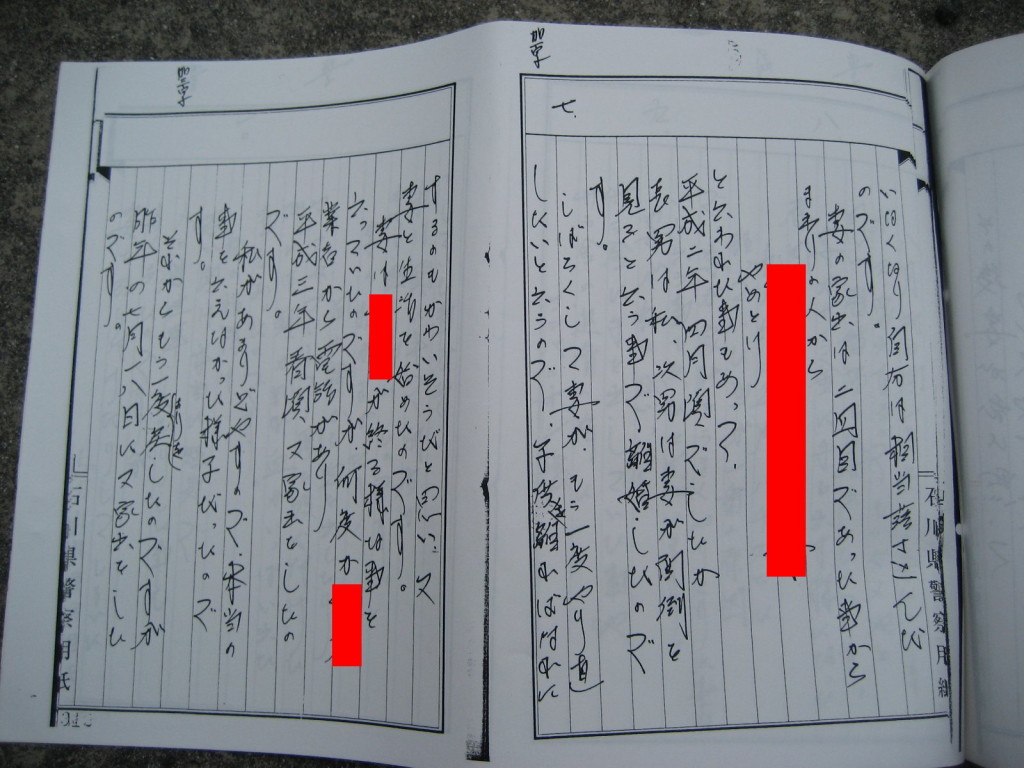 七、
のです。
妻の家出は二回目であった事から
まわりの人から
やめとけ
と云われた事もあって、
平成二年四月頃でしたか
長男は私、次男は妻が面倒を
見ると云う事で離婚したので
す。
しばらくして妻が、もう一度やり直
したいと云うので、子供
するのもかわいそうだと思い、又
妻と生活を始めたのです。
妻は
が終る様な事を
云っていたのですが、何度か
業者から電話があり
平成三年春頃又家出をしたの
です。
私があまりどやすので、本当の
事を云えなかった様子だったので
す。
それからもう一度
しを
したのですが
昨年の七月十八日に又家出をした
のです。
石川県警察用紙
石川県警察用紙